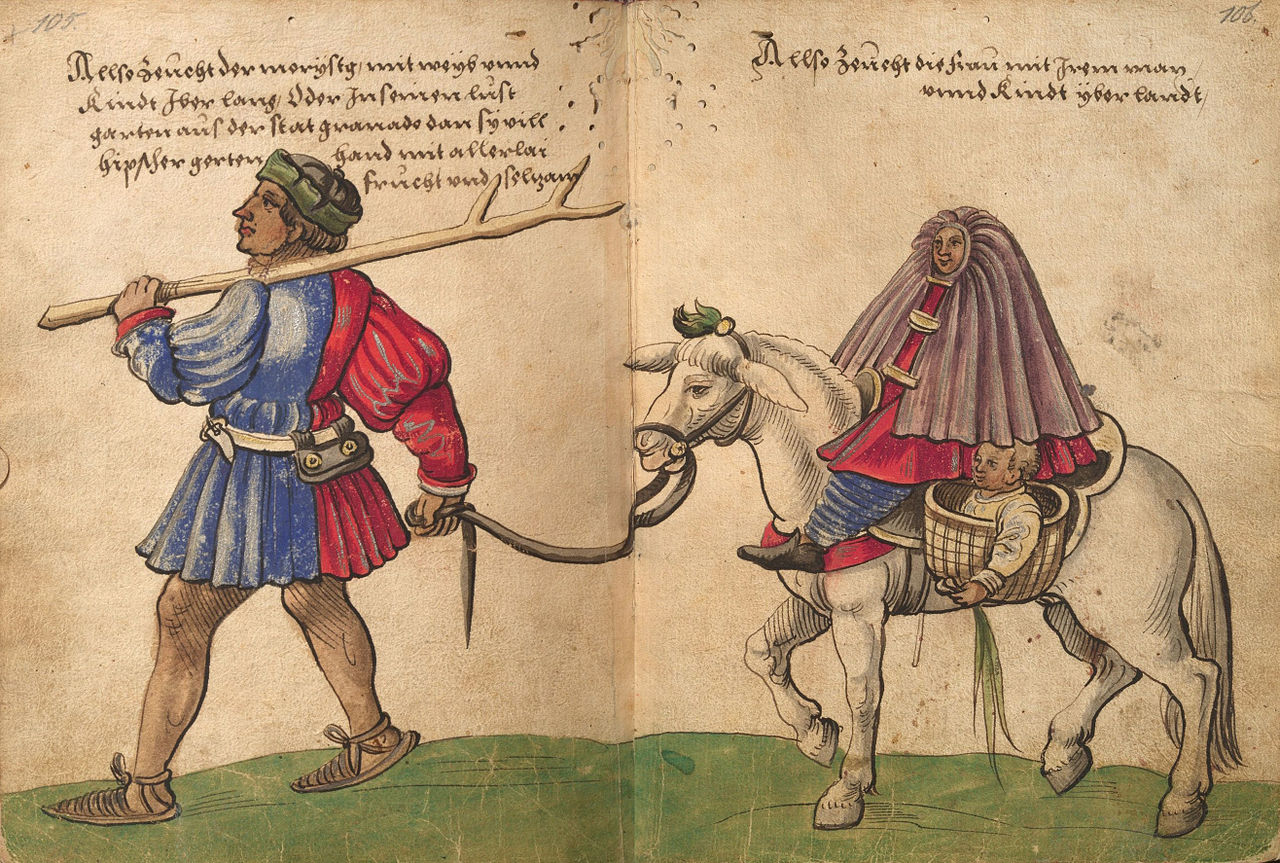 105.
Allso Zeücht der morystg, mit weyb vnnd
Kindt Iber lang, Oder In semen lüst
garten aüs der stat granado dan sy vill
hipscher gerten hand mit allerlai
frücht vnd selzam
106.
Allso Zeücht die fraü mit Irem man
vnnd Kindt yber landt,